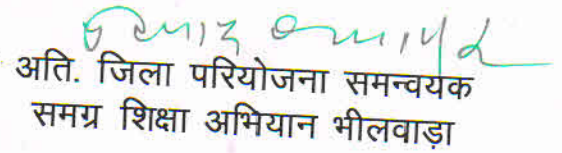 अति. जिला परियोजना समन्वयक
समग्र शिक्षा अभियान भीलवाड़ा